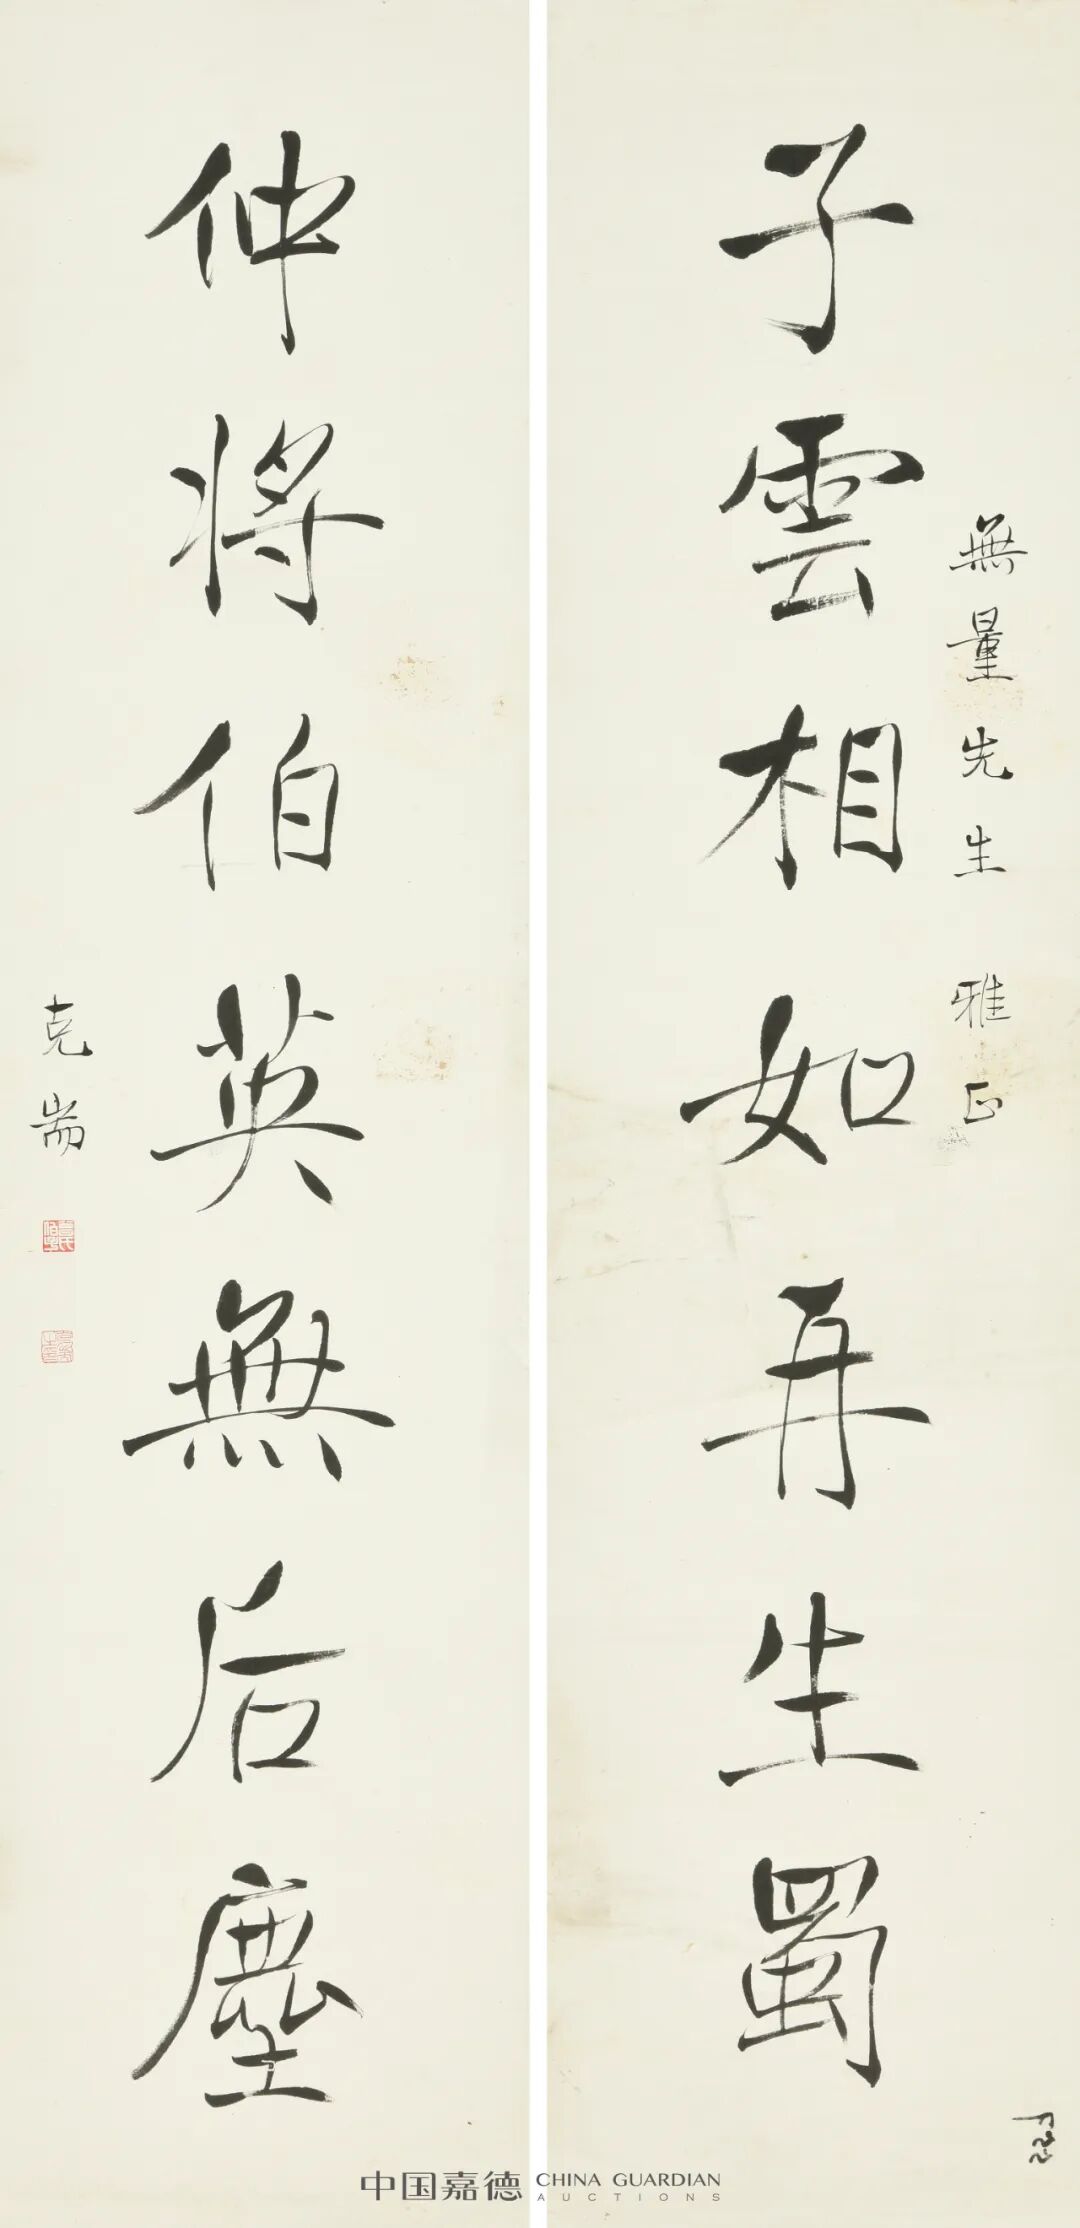 無量先生 雅正
子雲相如再生蜀
仲将伯英無后塵
克耑
中国嘉德 CHINA GUARDIAN
AUCTIONS